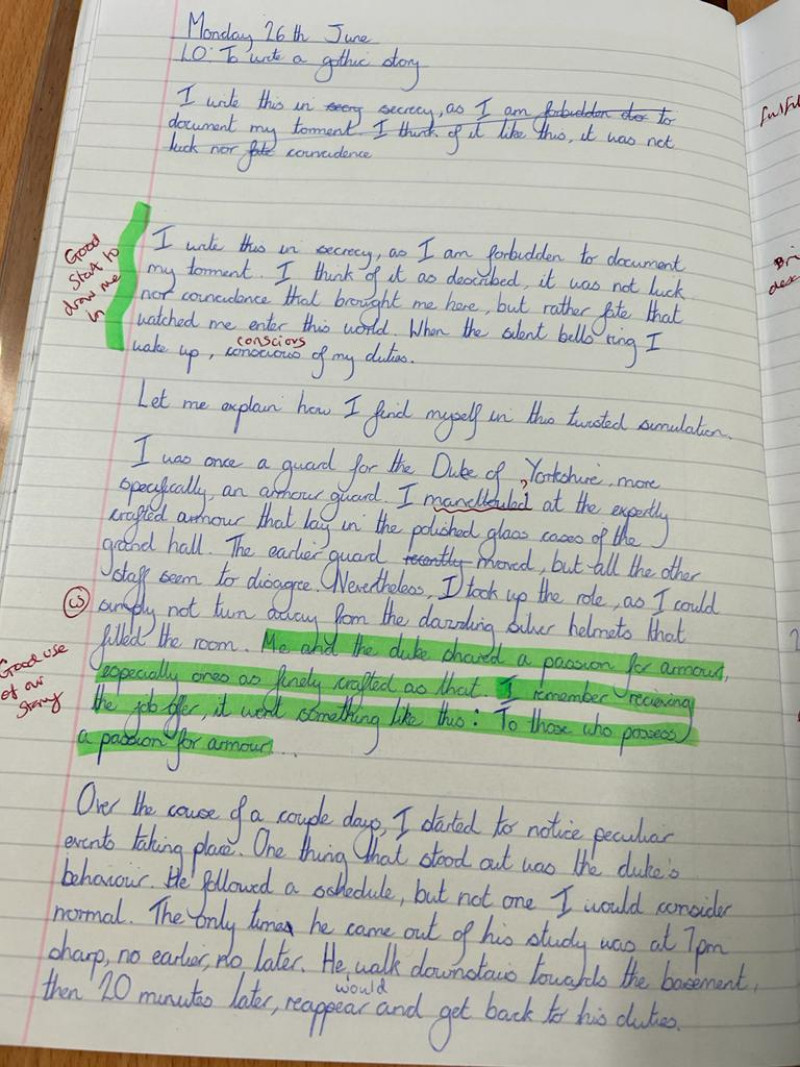 Monday 26th June
LO: To write a gothic story
I write this in secrecy, as I am forbidden to
document my torment. I think of it like this, it was not
luck nor fate coincidence
Good
start to
draw me
in
I write this in secrecy, as I am forbidden to document
my torment. I think of it as described, it was not luck
nor coincidence that brought me here, but rather fate that
watched me enter this world. When the silent bells ring I
conscious
wake up, of my duties.
Let me explain how I find myself in this twisted simulation.
I was once a guard for the Duke of Yorkshire, more
specifically, an armour guard. I at the expertly
crafted armour that lay in the polished glass cases of the
grand hall. The earlier guard recently moved, but all the other
staff seem to disagree. Nevertheless, I took up the role, as I could
simply not turn away from the dazzling silver helmets that
filled the room. Me and the duke shared a passion for armour,
especially ones as finely crafted as that. I remember recieving
the job offer, it went something like this: To those who possess
a passion for armour...
Good use
of our
Over the cause of a couple days, I started to notice peculiar
events taking place. One thing that stood out was the duke's
behaviour. He followed a schedule, but not one I would consider
normal. The only times he came out of his study was at 7pm
sharp, no earlier, no later. He walk downstairs towards the basement,
would
then 20 minutes later, reappear and get back to his duties.